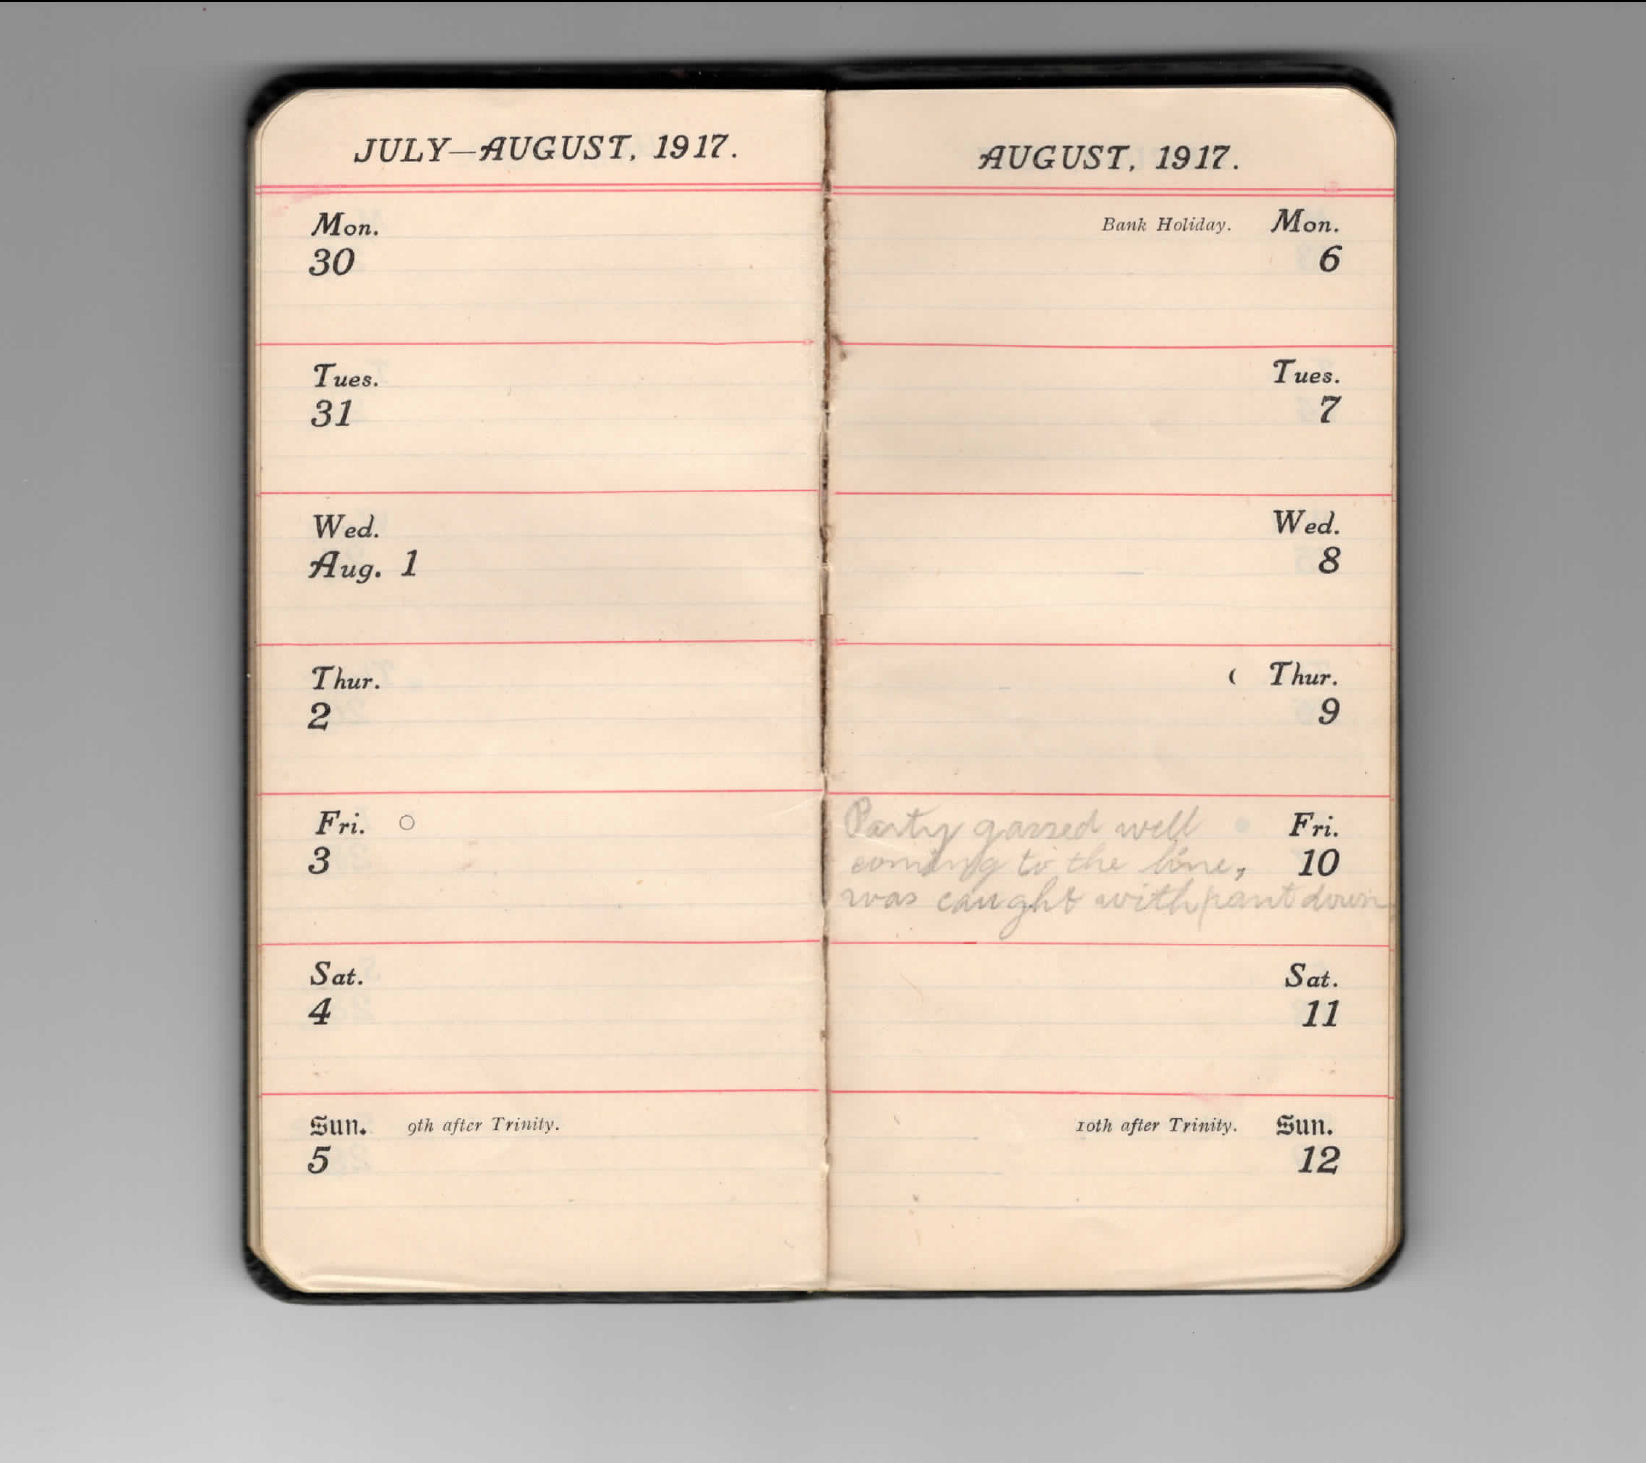 JULY—AUGUST, 1917.
Mon.
30
Tues.
31
Wed.
Aug. 1
Thur.
2
Fri. ○
3
Sat.
4
Sun. 9th after Trinity.
5
AUGUST, 1917.
Bank Holiday. Mon.
6
Tues.
7
Wed.
8
( Thur.
9
Party gassed well Fri.
coming to the line, 10
was caught with pant down
Sat.
11
10th after Trinity. Sun.
12